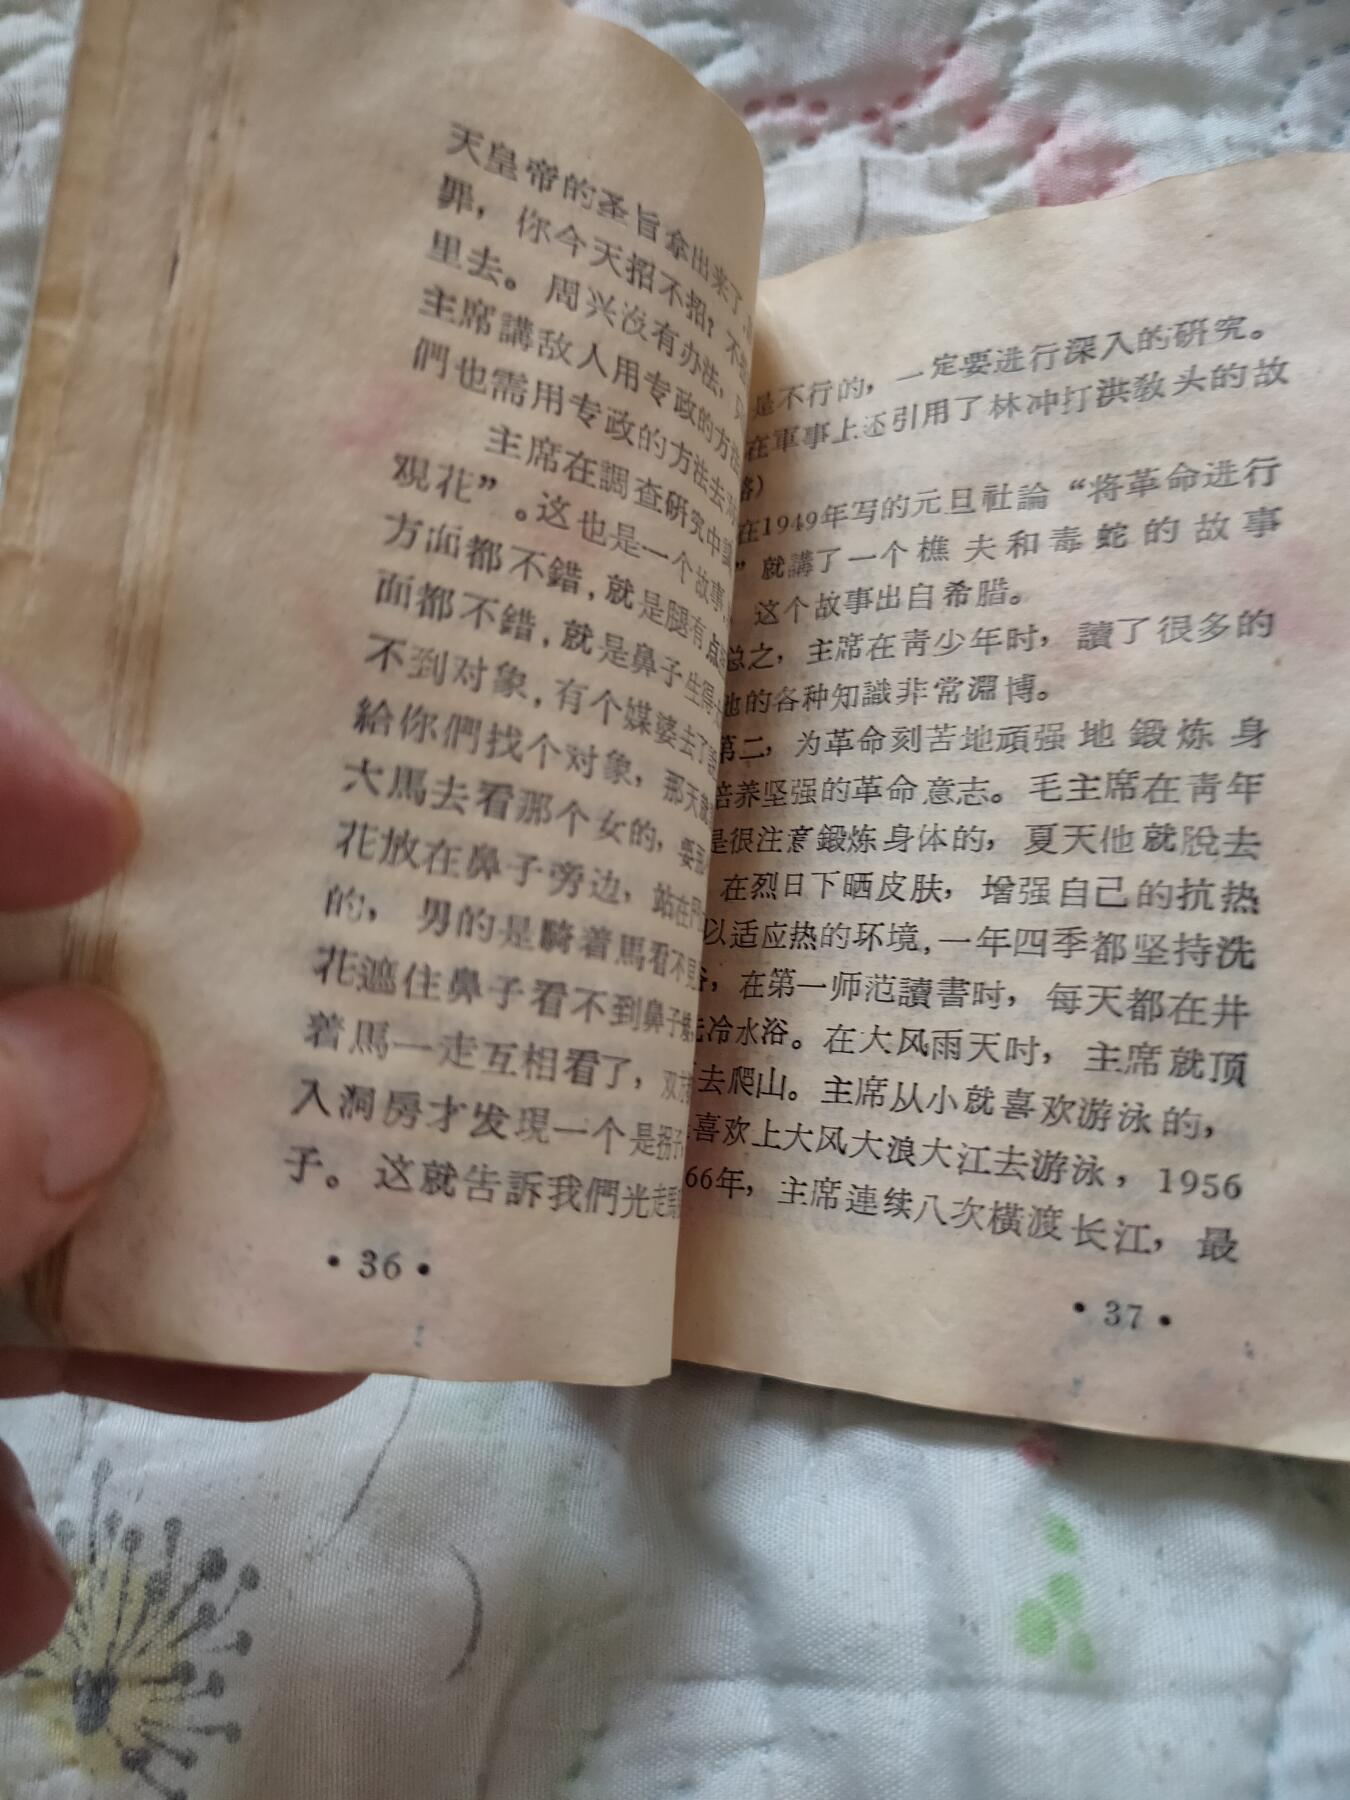 天皇帝的圣旨拿出来了,
罪,你今天招不招?不
里去。周兴沒有办法,
主席講敌人用专政的方法
們也需用专政的方法去
主席在調查研究中
观花”。这也是一个故事
方面都不錯,就是腿有点
面都不錯,就是鼻子生得
不到对象,有个媒婆去了
給你們找个对象,那天
大馬去看那个女的,要
花放在鼻子旁边,站在
的,男的是騎着馬看不
花遮住鼻子看不到鼻子
着馬一走互相看了,双方
入洞房才发現一个是拐子
子。这就告訴我們光走馬
•36•
是不行的,一定要进行深入的研究。
在軍事上还引用了林冲打洪敎头的故
略)
在1949年写的元旦社論“将革命进行
”就講了一个樵夫和毒蛇的故事
这个故事出自希腊。
总之,主席在靑少年时,讀了很多的
他的各种知識非常淵博。
第二,为革命刻苦地頑强地鍛炼身
培养坚强的革命意志。毛主席在靑年
是很注意鍛炼身体的,夏天他就脫去
在烈日下晒皮肤,增强自己的抗热
以适应热的环境,一年四季都坚持洗
浴,在第一师范讀書时,每天都在井
洗冷水浴。在大风雨天时,主席就顶
去爬山。主席从小就喜欢游泳的,
喜欢上大风大浪大江去游泳,1956
66年,主席連续八次横渡长江,最
•37•